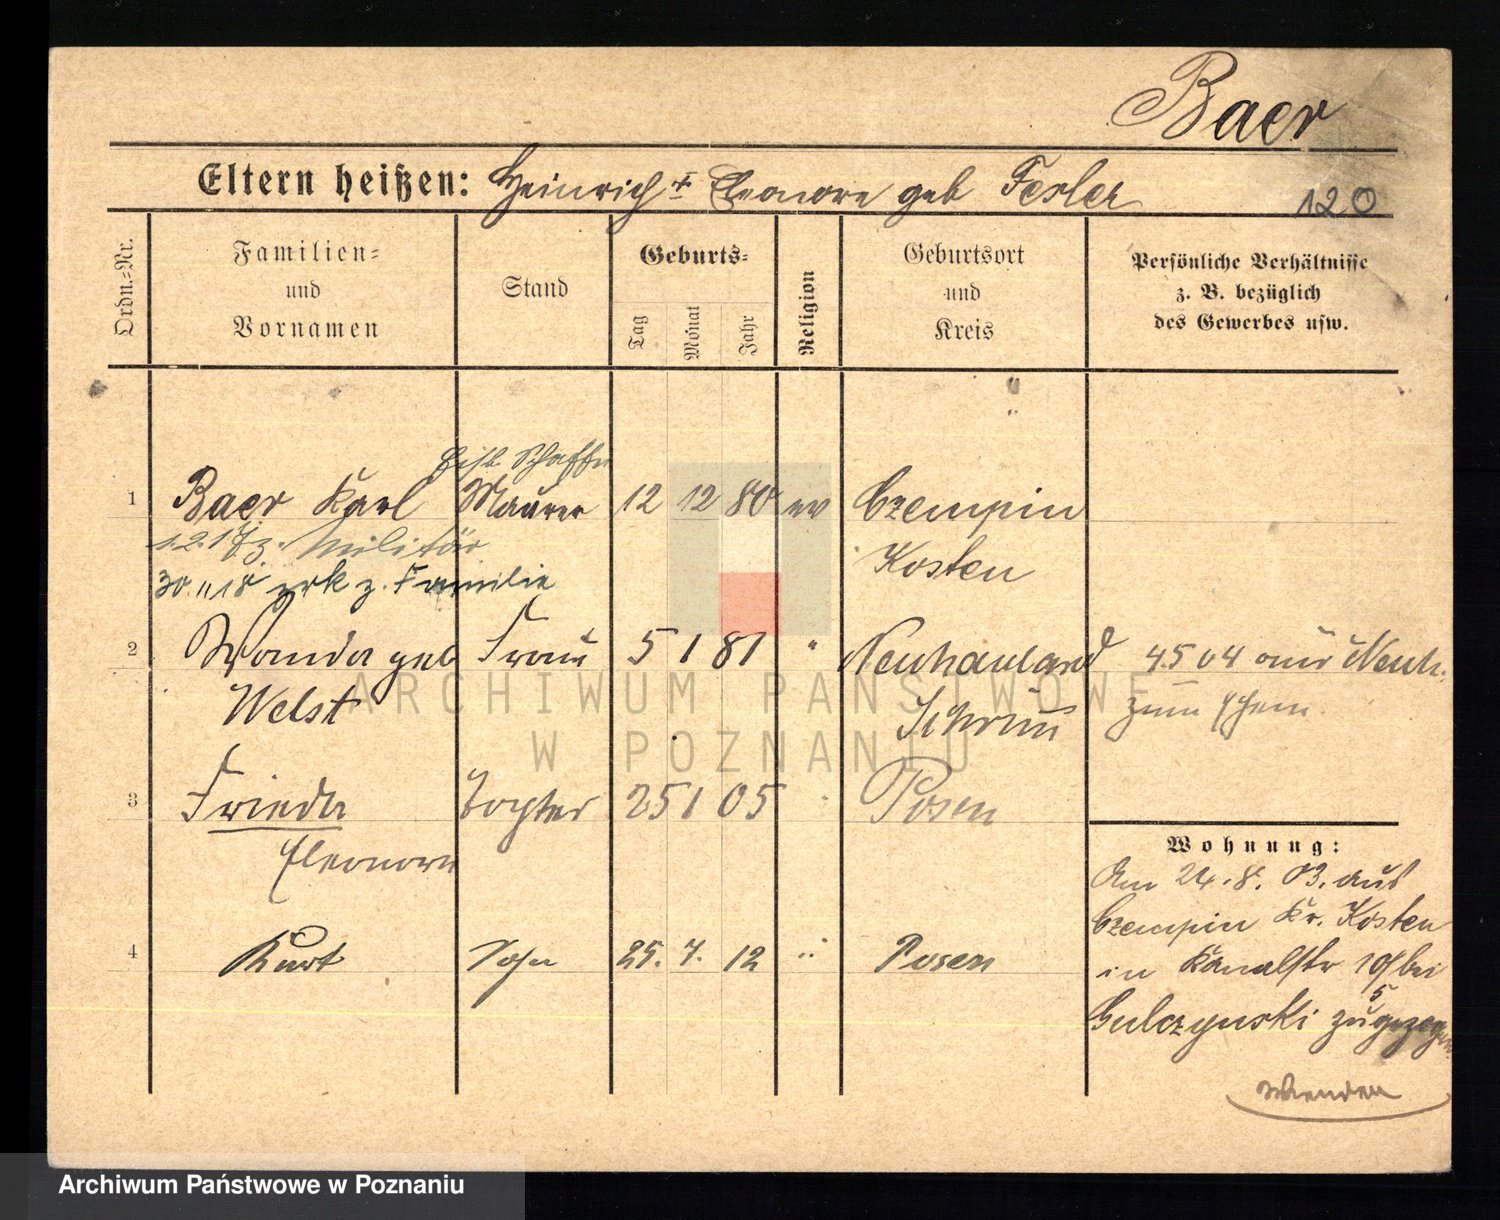 Baer
Eltern heißen: Heinrich + Eleonore geb Fesler
120
Ordn.-Nr.
Familien-
und
Vornamen
Stand
Geburts-
Tag
Monat
Jahr
Religion
Geburtsort
und
Kreis
Persönliche Verhältnisse
z. B. bezüglich
des Gewerbes usw.
1 Baer Karl Maurer 12 12 80 ev Czempin
Kosten
Militär
30 11 18 zrk z. Familie
2 Wanda geb Frau 5 1 81 " Neuhauland 4 5 04 aus Neuh.
Welst Schrim zum
3 Frieda Tochter 25 1 05 Posen
Eleonore
4 Kurt Sohn 25. 7. 12 " Posen
Wohnung:
Am 24. 8. 03. aus
Czempin Kr. Kosten
in Kanalstr bei
Gulczynski zugezogen
Wenden
ARCHIWUM PAŃSTWOWE
W POZNANIU
Archiwum Państwowe w Poznaniu